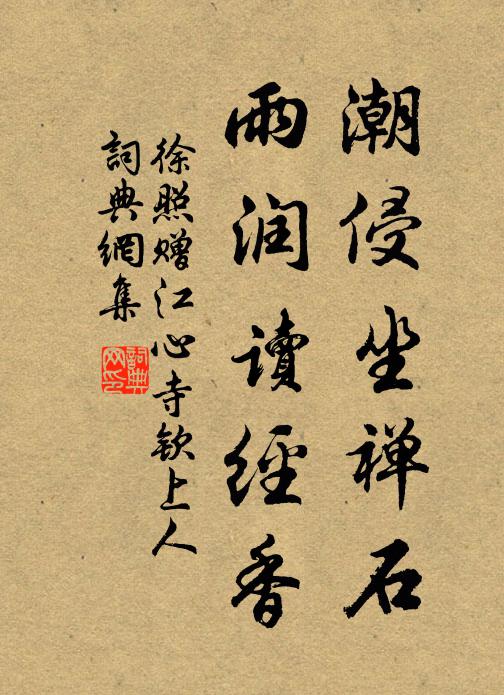 潮侵坐禅石
雨润讀經香
徐照赠江心寺欽上人
詞典網集
詞典网印